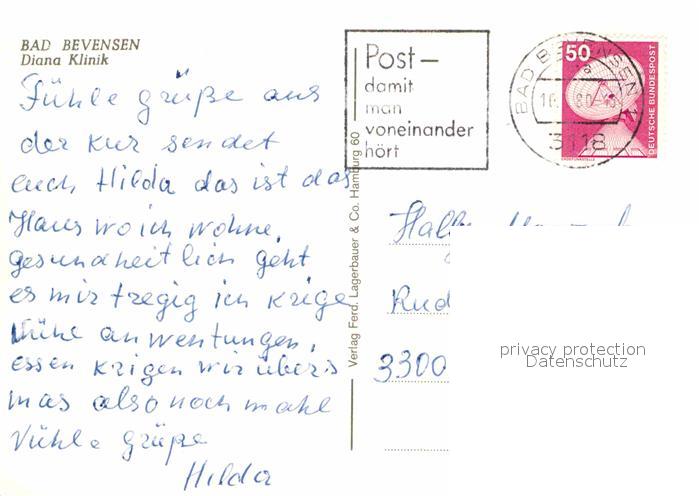 BAD BEVENSEN
Diana Klinik
Fühle grüße aus
der kur sendet
euch Hilda das ist das
Haus wo ich wohne,
gesundheitlich geht
es mir tregig ich krige
fühle anwentungen,
essen krigen wir übers
mas also noch mahl
Vühle grüße
Hilda
Verlag Ferd. Lagerbauer & Co. Hamburg 60
Post –
damit
man
voneinander
hört
BAD BEVENSEN 1
3118
50
DEUTSCHE BUNDESPOST
ERDEFUNKSTELLE
Rud
3300
privacy protection
Datenschutz